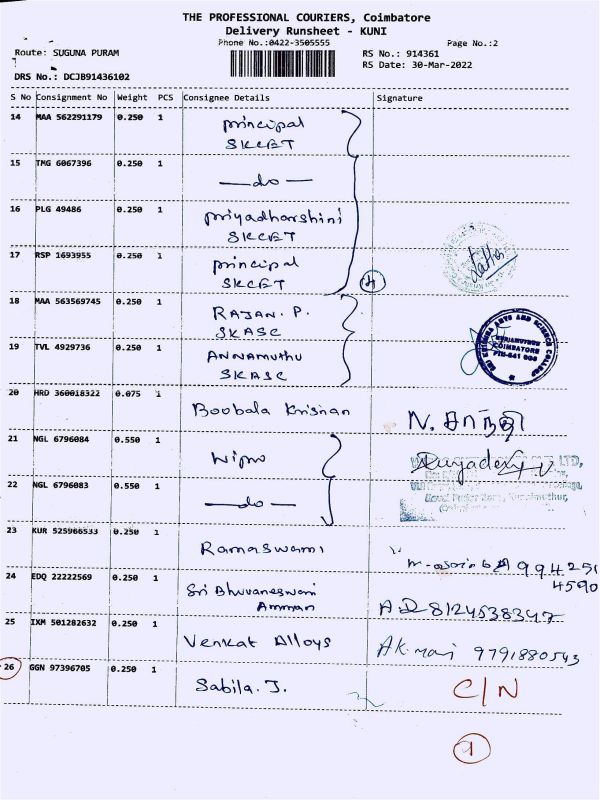 THE PROFESSIONAL COURIERS, Coimbatore
Delivery Runsheet - KUNI
Phone No.:0422-3505555 Page No.:2
Route: SUGUNA PURAM RS No.: 914361
RS Date: 30-Mar-2022
DRS No.: DCJB91436102
S No Consignment No Weight PCS Consignee Details Signature
14 MAA 562291179 0.250 1 principal
SKCET
15 TMG 6067396 0.250 1 —do—
16 PLG 49486 0.250 1 priyadharshini
SKCET
17 RSP 1693955 0.250 1 principal
SKCET
4
18 MAA 563569745 0.250 1 RAJAN. P.
SKASC
SRI KRISHNA ARTS AND SCIENCE COLLEGE
KUNIAMUTHUR
COIMBATORE
PIN-641 008
19 TVL 4929736 0.250 1 ANNAMUTHU
SKASC
20 HRD 360018322 0.075 1 Boobala Krisnan N. சாந்தி
21 NGL 6796084 0.550 1 Wipro
LTD,
22 NGL 6796083 0.550 1 —do—
23 KUR 525966533 0.250 1 Ramaswami 994251
4590
24 EDQ 22222569 0.250 1 Sri Bhuvaneswari
Amman 8124538347
25 IXM 501282632 0.250 1 Venkat Alloys AK. mani 9791880543
26 GGN 97396705 0.250 1 Sabila. J. C/N
1